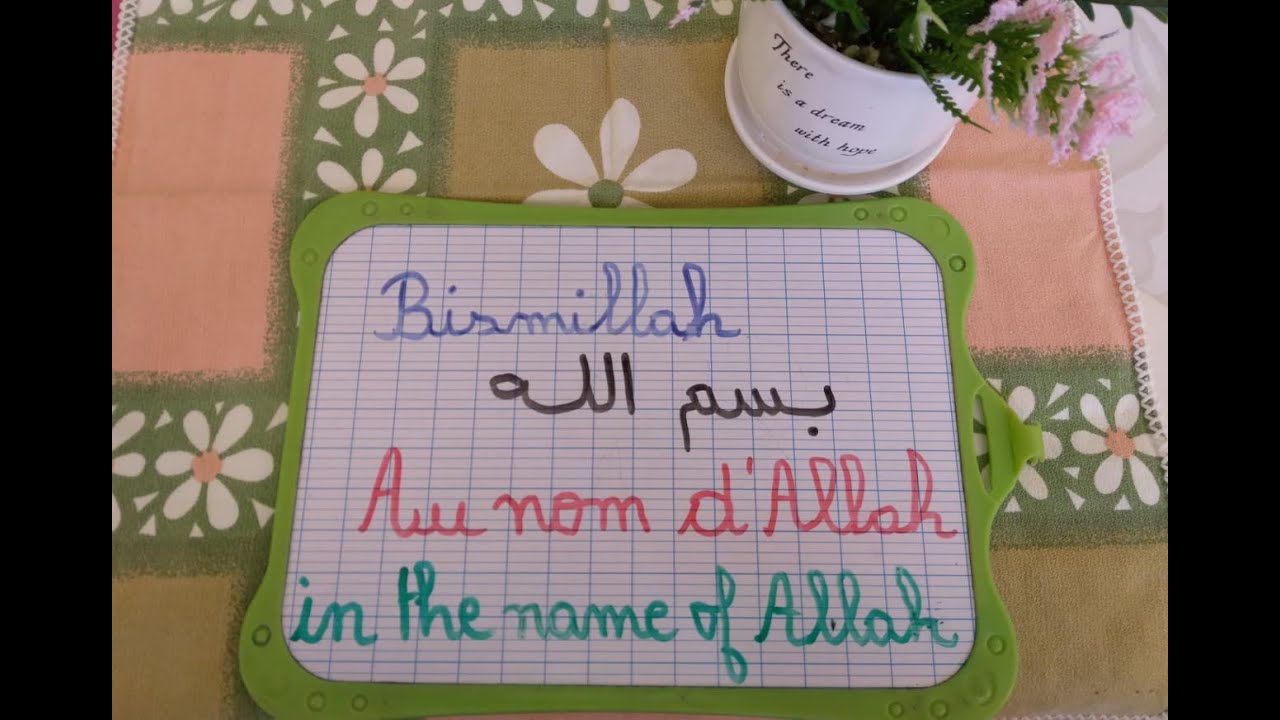 There
is a dream
with hope
Bismillah
بسم الله
Au nom d'Allah
in the name of Allah